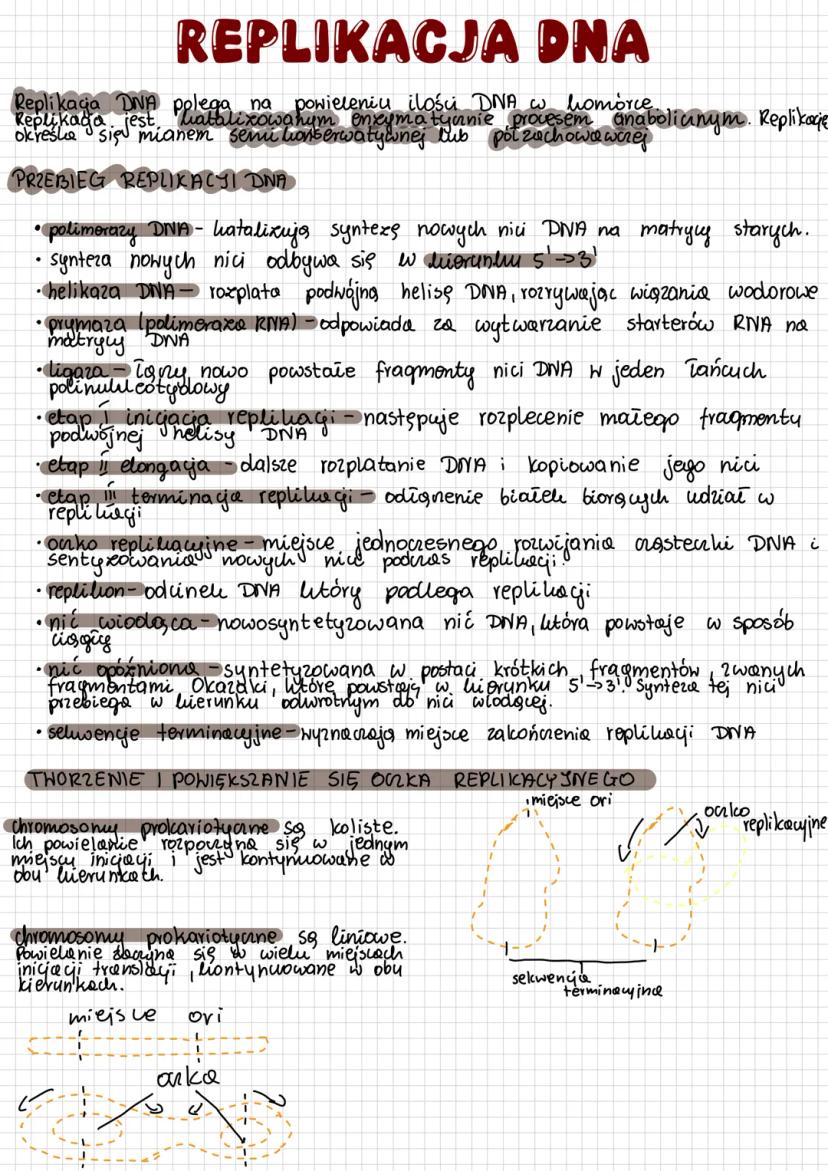 REPLIKACJA DNA
Replikacja DNA polega na powieleniu ilości DNA w komórce.
Replikacja jest katalizowanym enzymatycznie procesem anabolicznym. Replikację
określa się mianem semi konserwatywnej lub półzachowawczej
PRZEBIEG REPLIKACJI DNA
• polimerazy DNA - katalizują syntezę nowych nici DNA na matrycy starych.
• synteza nowych nici odbywa się w kierunku 5'->3'
• helikaza DNA - rozplata podwójną helisę DNA, rozrywając wiązania wodorowe
• prymaza (polimeraza RNA) - odpowiada za wytwarzanie starterów RNA na
matrycy DNA
• ligaza - łączy nowo powstałe fragmenty nici DNA w jeden łańcuch
polinukleotydowy
• etap I inicjacja replikacji - następuje rozplecenie małego fragmentu
podwójnej helisy DNA
• etap II elongacja - dalsze rozplatanie DNA i kopiowanie jego nici
• etap III terminacja replikacji - odłączenie białek biorących udział w
replikacji
• oczko replikacyjne - miejsce jednoczesnego rozwijania cząsteczki DNA i
sentyzowania nowych nici podczas replikacji.
• replikon - odcinek DNA który podlega replikacji
• nić wiodąca - nowosyntetyzowana nić DNA, która powstaje w sposób
ciągły
• nić opóźniona - syntetyzowana w postaci krótkich fragmentów, zwanych
fragmentami Okazaki, które powstają w kierunku 5'->3'. Synteza tej nici
przebiega w kierunku odwrotnym do nici wiodącej.
• sekwencje terminacyjne - wyznaczają miejsce zakończenia replikacji DNA
TWORZENIE I POWIĘKSZANIE SIĘ OCZKA REPLIKACYJNEGO
chromosomy prokariotyczne są koliste.
Ich powielanie rozpoczyna się w jednym
miejscu inicjacji i jest kontynuowane w
obu kierunkach.
miejsce ori
oczko
replikacyjne
sekwencja
terminacyjna
chromosomy prokariotyczne są liniowe.
Powielanie zaczyna się w wielu miejscach
inicjacji translacji, kontynuowane w obu
kierunkach.
miejsce ori
oczka